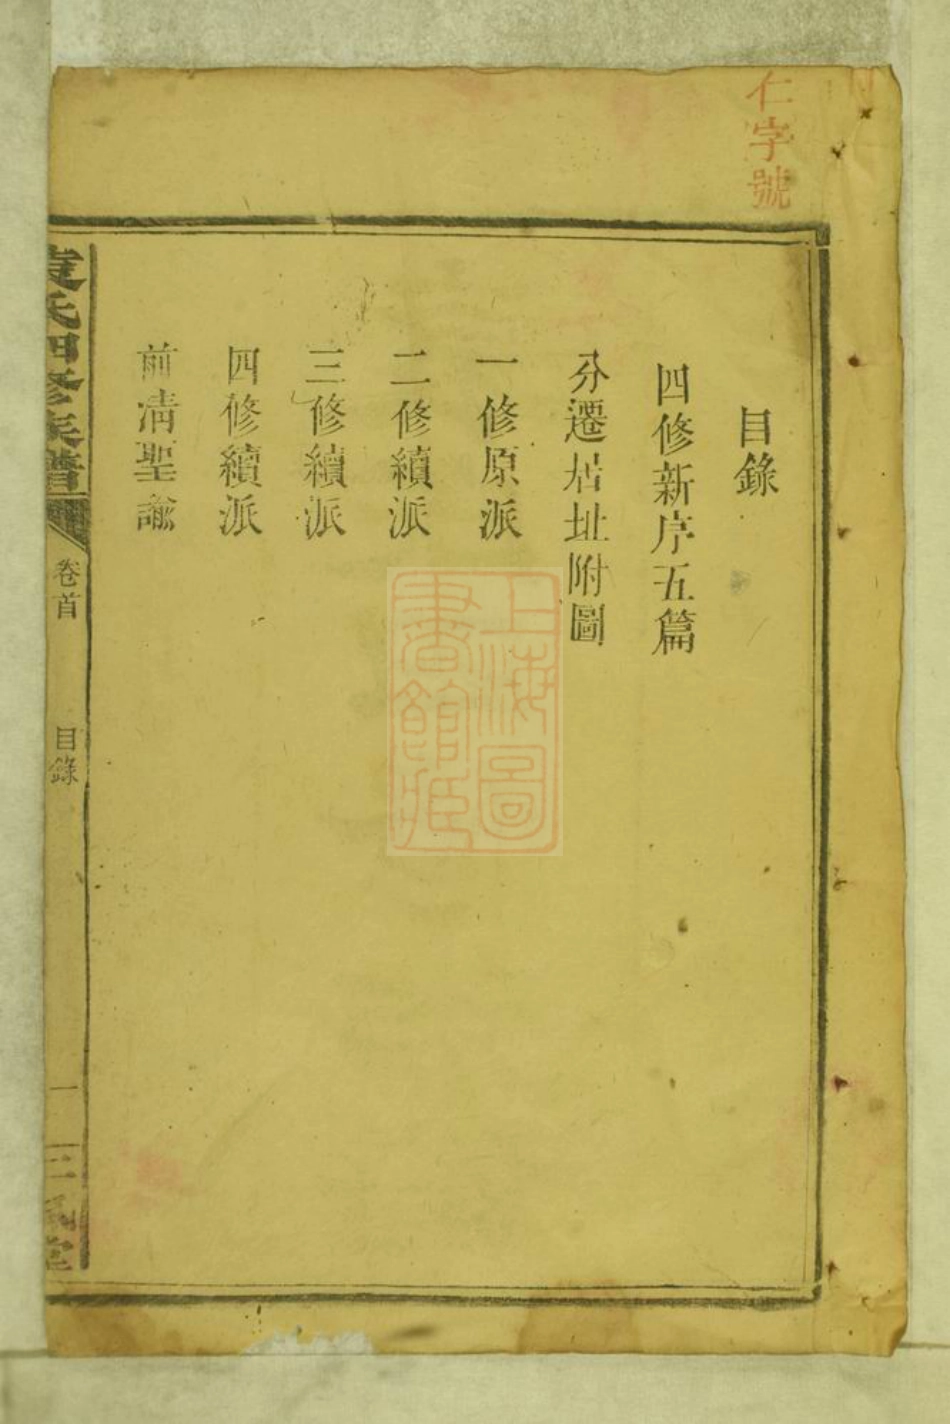 仁字號
目錄
四修新序五篇
分遷居址附圖
一修原派
二修續派
三修續派
四修續派
前清聖諭
氏四修族譜
卷首
目錄
一
三
堂
上海圖
書館藏